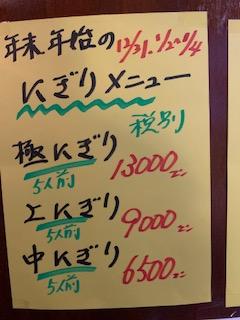 年末年始の 12/31、1/2〜1/4
にぎりメニュー
税別
極にぎり 13000エン
5人前
上にぎり 9000エン
5人前
中にぎり 6500エン
5人前